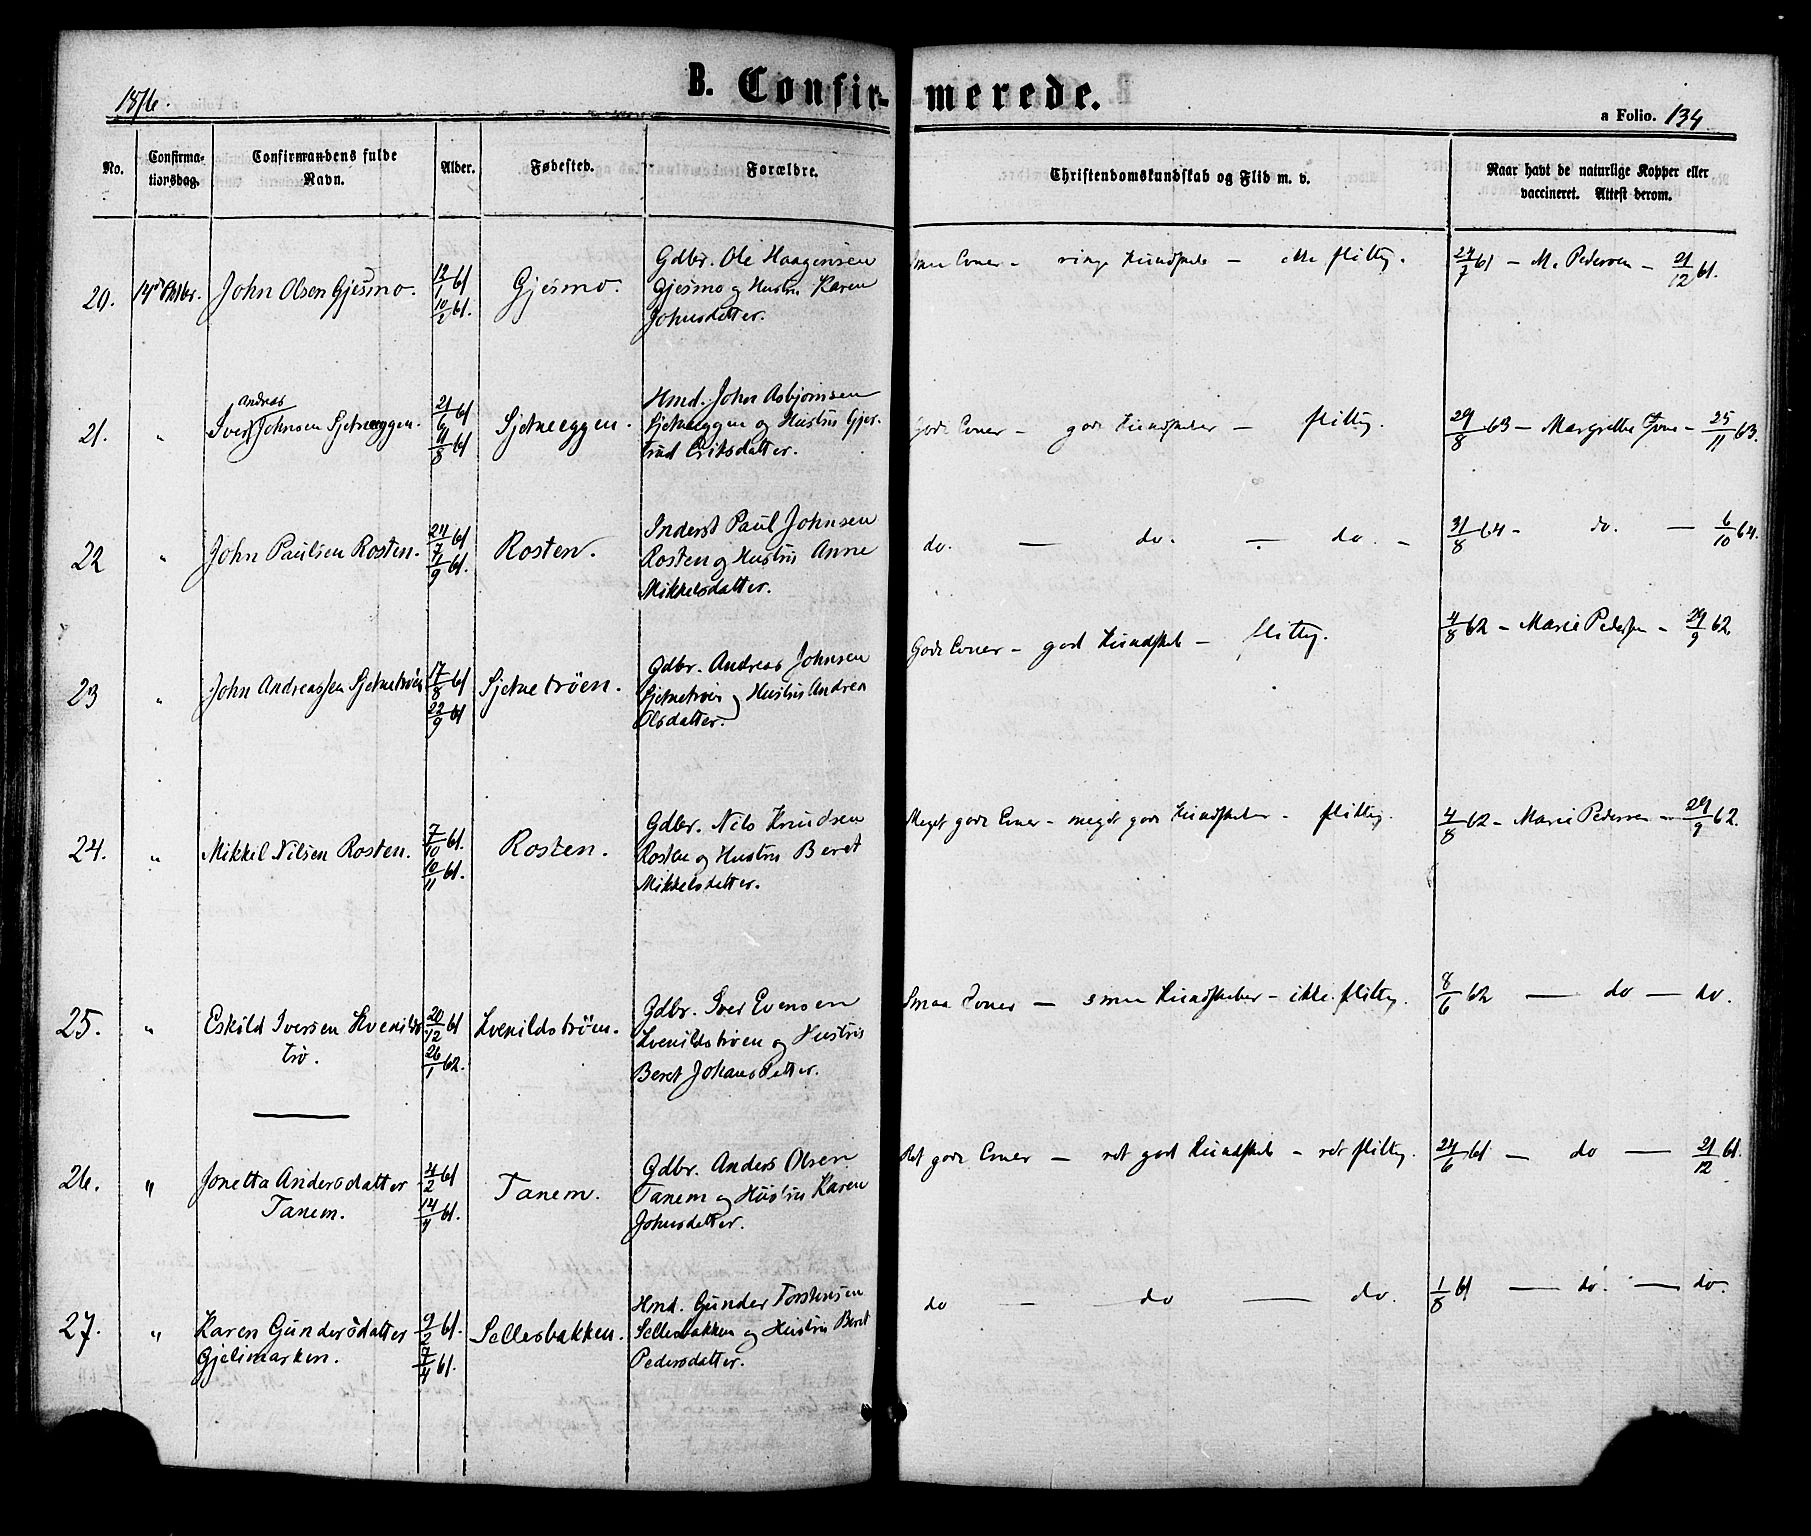 1876.
B. Confir-merede.
a Folio. 134
No. Confirma-tionsdag. Confirmandens fulde Navn. Alder. Fødested. Forældre. Christendomskundskab og Flid m. v. Naar havt de naturlige Kopper eller vaccineret. Attest derom.
20. 14de Oktbr. John Olsen Gjesmo. 12/1 61 10/2 61. Gjesmo. Gdbr. Ole Haagensen
Gjesmo og Hustru Karen
Johnsdatter.
Smaa Evner – ringe Kundskab – ikke flittig. 24/7 61 – M. Pedersen – 21/12 61.
21. " Iver Andreas Johnsen Sjetneeggen. 21/6 61 11/8 61 Sjetneeggen. Hmd. John Asbjørnsen
Sjetneeggen og Hustru Gjer-
trud Eriksdatter.
Gode Evner – gode Kundskaber – flittig. 29/8 63 – Margrethe – 25/11 63.
22 " John Paulsen Rosten. 24/7 61 7/9 61. Rosten. Inderst Paul Johnsen
Rosten og Hustru Anne
Mikkelsdatter.
do. — do. — do. – 31/8 64 – do. — 6/10 64.
23 " John Andreassen Sjetnetrøen 17/8 61 22/9 61 Sjetnetrøen. Gdbr. Andreas Johnsen
Sjetnetrøen og Hustru Andrea
Olsdatter.
Gode Evner – god Kundskab – flittig. 4/8 62 – Marie Pedersen – 29/9 62
24. " Mikkel Nilsen Rosten. 7/10 61. 10/11 61. Rosten. Gdbr. Nils Knudsen
Rosten og Hustru Beret
Mikkelsdatter.
Meget gode Evner – meget gode Kundskaber – flittig. 4/8 62 – Marie Pedersen – 29/9 62.
25. " Eskild Iversen Kvenilds
trø. 20/12 61 26/1 62. Kvenildstrøen. Gdbr. Iver Evensen
Kvenildstrøen og Hustru
Beret Johansdatter.
Smaa Evner — smaa Kundskaber – ikke flittig. 8/6 62 — do — do.
26. " Jonetta Andersdatter
Tanem. 4/2 61 14/4 61. Tanem. Gdbr. Anders Olsen
Tanem og Hustru Karen
Johnsdatter.
Ret gode Evner — ret god Kundskab – ret flittig. 24/6 61 — do — 21/12 61.
27. " Karen Gundersdatter
Gjelimarken. 9/2 61. 7/4 61. Sellesbakken. Hmd. Gunder Torstensen
Sellesbakken og Hustru Beret
Pedersdatter.
do — do — do. 1/8 61 — do. — do.